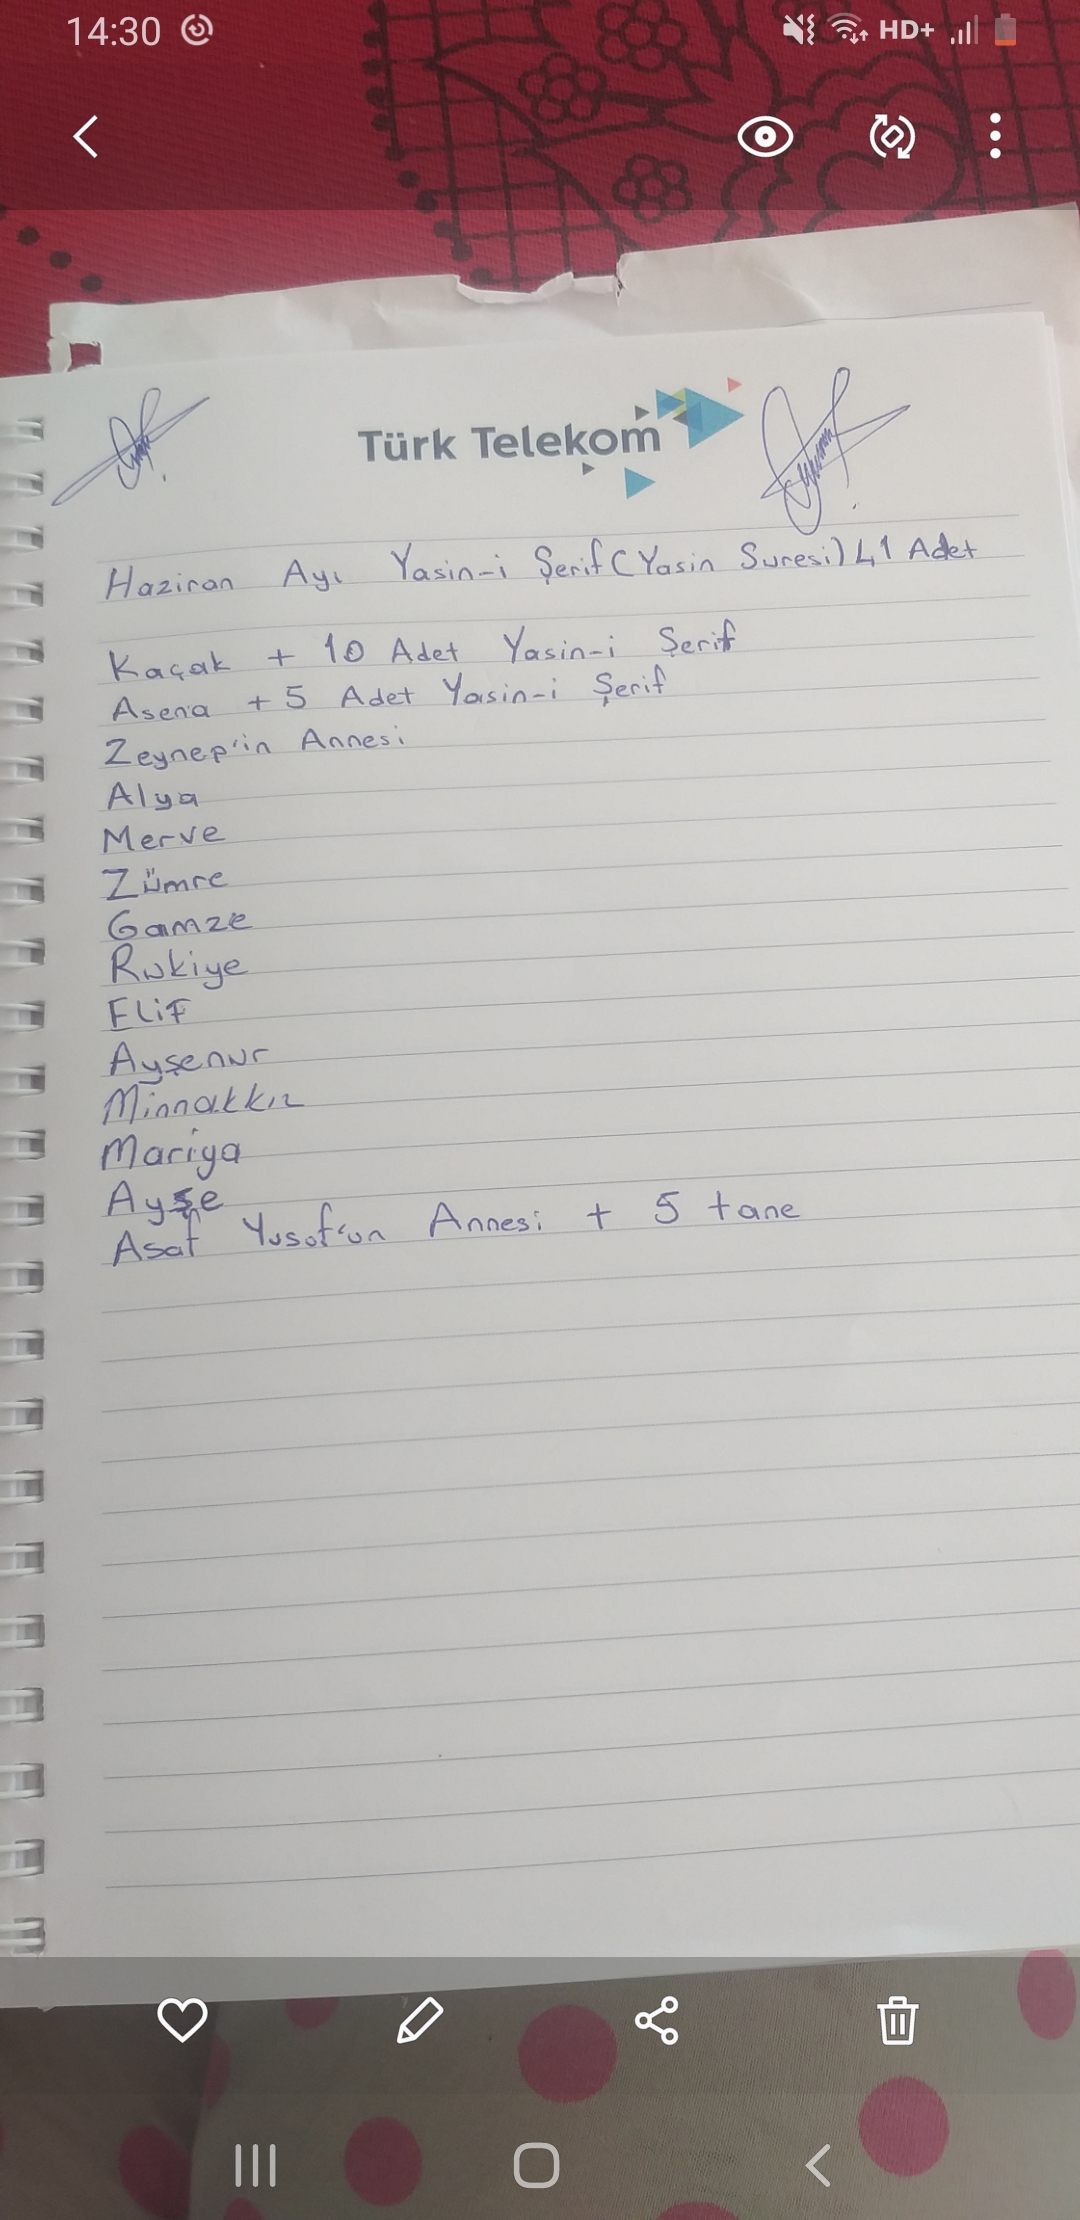 14:30 HD+
Türk Telekom
Haziran Ayı Yasin-i Şerif (Yasin Suresi) 41 Adet
Kaçak + 10 Adet Yasin-i Şerif
Asena + 5 Adet Yasin-i Şerif
Zeynep'in Annesi
Alya
Merve
Zümre
Gamze
Rukiye
Elif
Ayşenur
Minnakkız
Mariya
Ayşe
Asaf Yusuf'un Annesi + 5 tane